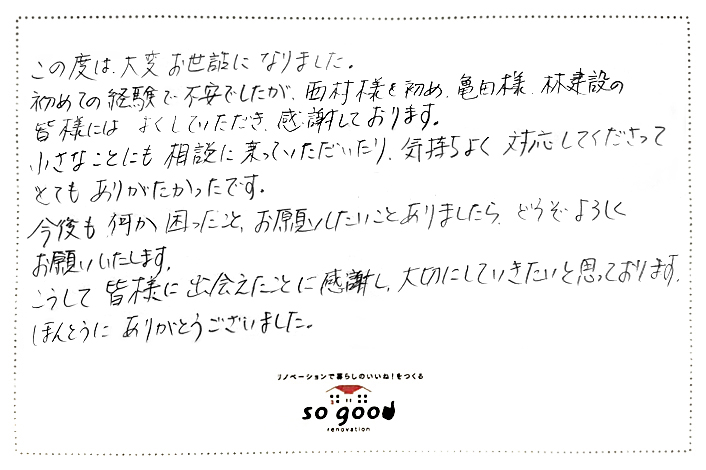 この度は、大変お世話になりました。
初めての経験で不安でしたが、西村様を初め、亀田様、林建設の
皆様には よくしていただき、感謝しております。
小さなことにも相談に乗っていただいたり、気持ちよく対応してくださって
とても ありがたかったです。
今後も 何か困ったこと、お願いしたいことありましたら、どうぞよろしく
お願いいたします。
こうして 皆様に出会えたことに感謝し、大切にしていきたいと思っております。
ほんとうに ありがとうございました。
リノベーションで暮らしのいいね！をつくる
so good
renovation